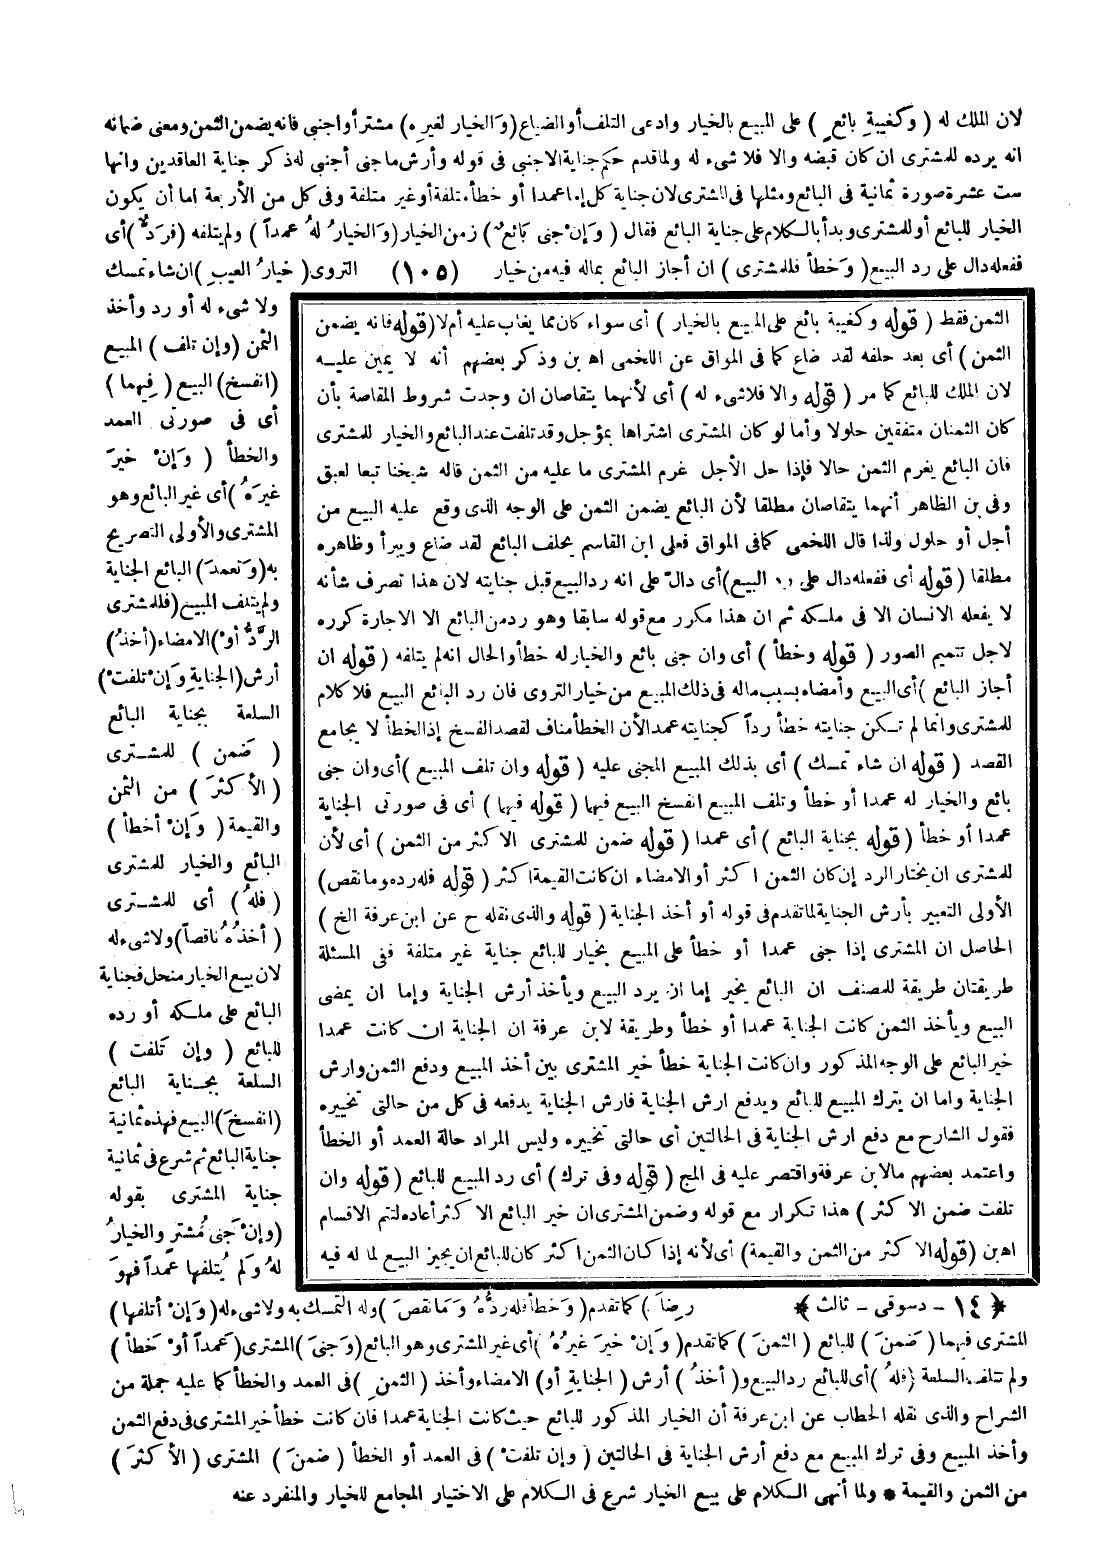 لان الملك له ( وكغيبةِ بائعٍ ) على المبيع بالخيار وادعى التلف أو الضياع (وَالخيار لغيره) مشتر أو اجنبى فانه يضمن الثمن ومعنى ضمانه
انه يرده للمشترى ان كان قبضه والا فلا شىء له ولما قدم حكم جناية الاجنبى فى قوله وأرش ما جنى أجنبى له ذكر جناية العاقدين وانها
ست عشرة صورة ثمانية فى البائع ومثلها فى المشترى لان جناية كل إما عمدا أو خطأ متلفة أو غير متلفة وفى كل من الأربعة اما أن يكون
الخيار للبائع أو للمشترى وبدأ بالكلام على جناية البائع فقال ( وَإنْ جنى بَائعٌ ) زمن الخيار (وَالخيارُ لهُ عمداً ) ولم يتلفه (فَرَدٌّ )أى
ففعله دال على رد البيع (وَخطأ فللمشترى ) ان أجاز البائع بماله فيه من خيار (١٠٥) التروى ( خيارُ العيبِ )ان شاء تمسك
ولا شىء له أو رد وأخذ
الثمن (وإن تلف ) المبيع
(انفسخ) البيع ( فِيهما )
أى فى صورتى العمد
والخطأ ( وَإنْ خيرَ
غيرَهُ )أى غير البائع وهو
المشترى والأولى التصريح
به (وَتعمدَ) البائع الجناية
ولم يتلف المبيع (فللمشترى
الرَّدُّ أوْ) الامضاء (أخذُ)
أرش (الجنايةِ وَإنْ تلفتْ)
السلعة بجناية البائع
( ضَمنَ ) للمشترى
( الأكثرَ ) من الثمن
والقيمة ( وَإنْ أخطأ )
البائع والخيار للمشترى
( فلهُ ) أى للمشترى
( أخذُهُ ناقصاً) ولا شىء له
لان بيع الخيار منحل فجناية
البائع على ملكه أو رده
للبائع ( وإن تَلفت )
السلعة بجناية البائع
(انفسخَ) البيع فهذه ثمانية
جناية البائع ثم شرع فى ثمانية
جناية المشترى بقوله
(وإنْ جَنى مُشترٍ والخيارُ
لهُ وَلم يُتلفها عمداً فهوَ
الثمن فقط ( قوله وكغيبة بائع على المبيع بالخيار ) أى سواء كان مما يغاب عليه أم لا (قوله فانه يضمن
الثمن ) أى بعد حلفه لقد ضاع كما فى المواق عن اللخمى اه بن وذكر بعضهم أنه لا يمين عليه
لان الملك للبائع كما مر ( قوله والا فلا شىء له ) أى لأنهما يتقاصان ان وجدت شروط المقاصة بأن
كان الثمنان متفقين حلولا وأما لو كان المشترى اشتراها بمؤجل وقد تلفت عند البائع والخيار للمشترى
فان البائع يغرم الثمن حالا فإذا حل الأجل غرم المشترى ما عليه من الثمن قاله شيخنا تبعا لعبق
وفى بن الظاهر أنهما يتقاصان مطلقا لأن البائع يضمن الثمن على الوجه الذى وقع عليه البيع من
أجل أو حلول ولذا قال اللخمى كما فى المواق فعلى ابن القاسم يحلف البائع لقد ضاع ويبرأ وظاهره
مطلقا ( قوله أى ففعله دال على رد البيع)أى دال على انه رد البيع قبل جنايته لان هذا تصرف شأنه
لا يفعله الانسان الا فى ملكه ثم ان هذا مكرر مع قوله سابقا وهو رد من البائع الا الاجارة كرره
لاجل تتميم الصور ( قوله وخطأ ) أى وان جنى بائع والخيار له خطأ والحال انه لم يتلفه ( قوله ان
أجاز البائع )أى البيع وأمضاه بسبب ماله فى ذلك المبيع من خيار التروى فان رد البائع البيع فلا كلام
للمشترى وانما لم تكن جنايته خطأ رداً كجنايته عمدا لأن الخطأ مناف لقصد الفسخ إذ الخطأ لا يجامع
القصد ( قوله ان شاء تمسك ) أى بذلك المبيع المجنى عليه ( قوله وان تلف المبيع )أى وان جنى
بائع والخيار له عمدا أو خطأ وتلف المبيع انفسخ البيع فيهما ( قوله فيهما ) أى فى صورتى الجناية
عمدا أو خطأ ( قوله بجناية البائع ) أى عمدا ( قوله ضمن للمشترى الاكثر من الثمن ) أى لأن
للمشترى ان يختار الرد إن كان الثمن اكثر أو الامضاء ان كانت القيمة اكثر ( قوله فله رده وما نقص)
الأولى التعبير بأرش الجناية لما تقدم فى قوله أو أخذ الجناية ( قوله والذى نقله ح عن ابن عرفة الخ )
الحاصل ان المشترى إذا جنى عمدا أو خطأ على المبيع بخيار للبائع جناية غير متلفة ففى المسئلة
طريقتان طريقة للمصنف ان البائع يخير إما ان يرد البيع ويأخذ أرش الجناية وإما ان يمضى
البيع ويأخذ الثمن كانت الجناية عمدا أو خطأ وطريقة لابن عرفة ان الجناية ان كانت عمدا
خير البائع على الوجه المذكور وان كانت الجناية خطأ خير المشترى بين أخذ المبيع ودفع الثمن وارش
الجناية واما ان يترك المبيع للبائع ويدفع ارش الجناية فارش الجناية يدفعه فى كل من حالتى تخييره
فقول الشارح مع دفع ارش الجناية فى الحالتين أى حالتى تخييره وليس المراد حالة العمد أو الخطأ
واعتمد بعضهم مالابن عرفة واقتصر عليه فى المج ( قوله وفى ترك ) أى رد المبيع للبائع ( قوله وان
تلفت ضمن الاكثر ) هذا تكرار مع قوله وضمن المشترى ان خير البائع الاكثر أعاده لتتم الاقسام
اه بن (قوله الاكثر من الثمن والقيمة) أى لأنه إذا كان الثمن اكثر كان للبائع ان يجيز البيع لما له فيه
﴿ ١٤ - دسوقى - ثالث ﴾
رِضاً ) كما تقدم ( وَخطأ فله ردُّهُ وَمَا نقصَ ) وله التمسك به ولا شىء له (وَإنْ أتلفها )
المشترى فيهما ( ضَمنَ ) للبائع ( الثمنَ ) كما تقدم ( وَإنْ خيرَ غيرُهُ )أى غير المشترى وهو البائع (وَجنىَ ) المشترى ( عَمداً أوْ خَطأ )
ولم تتلف السلعة (فلهُ )أى للبائع رد البيع و( أخذُ ) أرش ( الجنايةِ أو) الامضاء وأخذ ( الثمنِ )فى العمد والخطأ كما عليه جملة من
الشراح والذى نقله الحطاب عن ابن عرفة أن الخيار المذكور للبائع حيث كانت الجناية عمدا فان كانت خطأ خير المشترى فى دفع الثمن
وأخذ المبيع وفى ترك المبيع مع دفع أرش الجناية فى الحالتين ( وَإن تلفتْ ) فى العمد أو الخطأ ( ضمنَ ) المشترى ( الأكثرَ )
من الثمن والقيمة * ولما أنهى الكلام على بيع الخيار شرع فى الكلام على الاختيار المجامع للخيار والمنفرد عنه